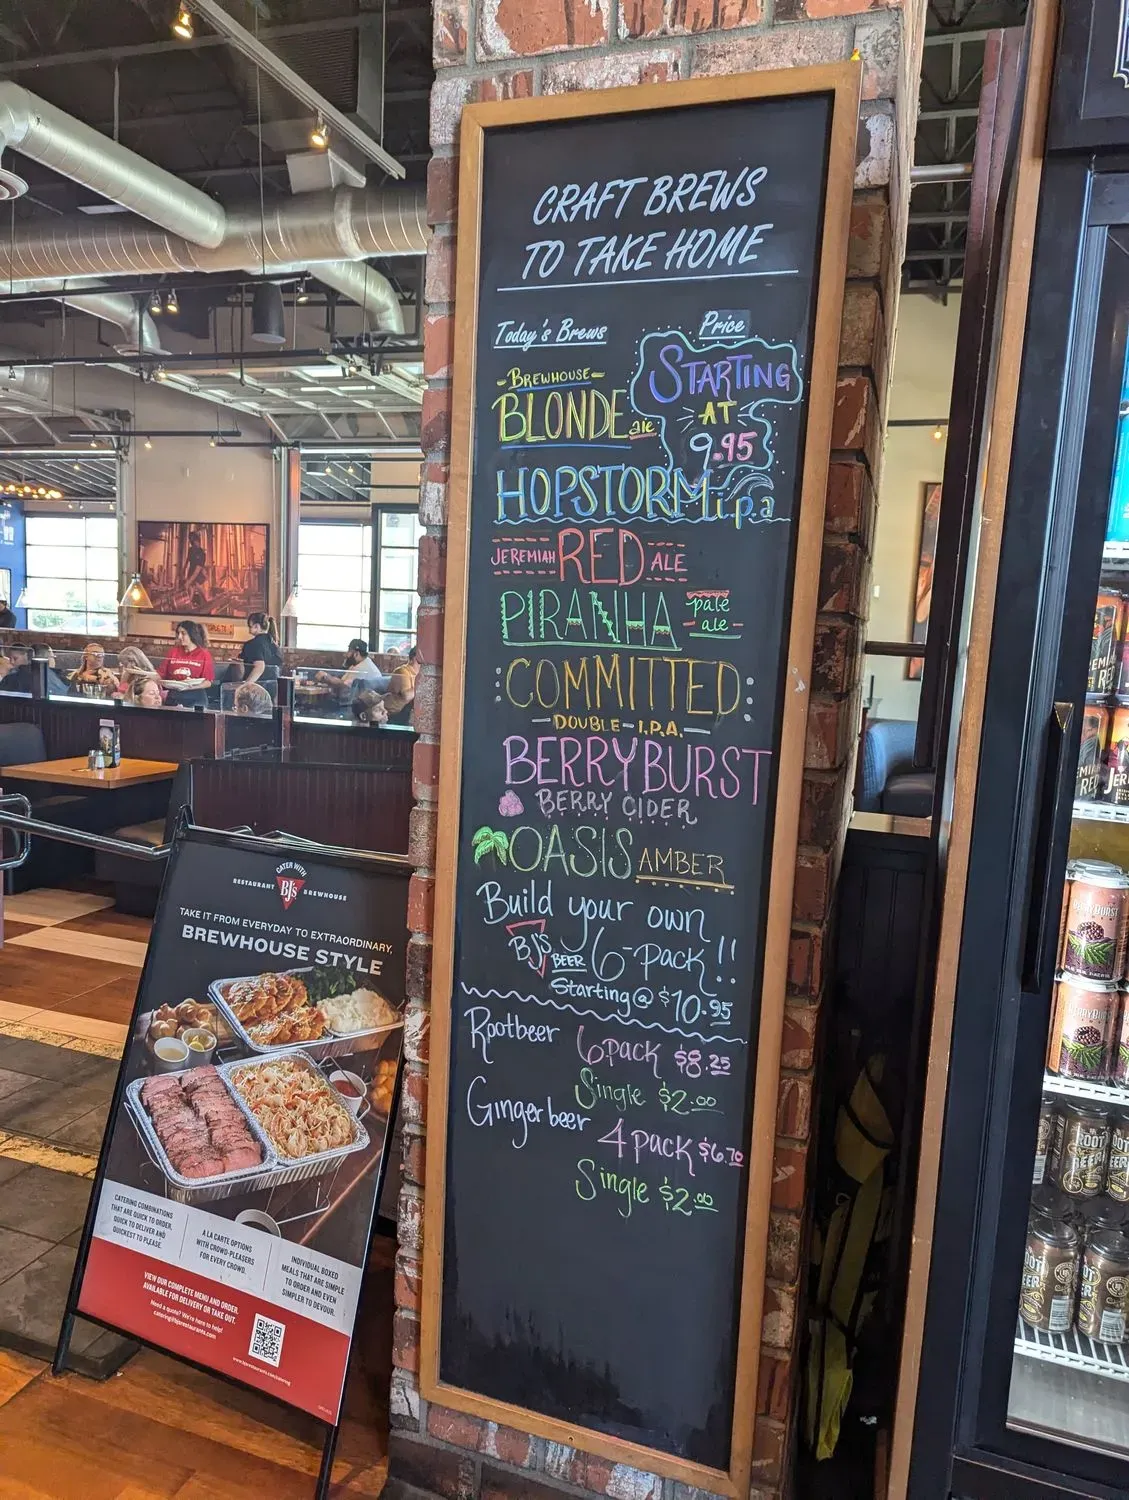 CRAFT BREWS
TO TAKE HOME
Today's Brews
Price
STARTING
AT
9.95
-BREWHOUSE-
BLONDE ale
HOPSTORM i.p.a
JEREMIAH RED ALE
PIRANHA pale
ale
COMMITTED
-DOUBLE-I.P.A.-
BERRYBURST
BERRY CIDER
OASIS AMBER
Build your own
BJ'S BEER 6-Pack!!
Starting @ $10.95
Rootbeer 6pack $8.25
Single $2.00
Ginger beer 4pack $6.70
Single $2.00
CATER WITH
RESTAURANT BJ's BREWHOUSE
TAKE IT FROM EVERYDAY TO EXTRAORDINARY,
BREWHOUSE STYLE
CATERING COMBINATIONS
THAT ARE QUICK TO ORDER,
QUICK TO DELIVER AND
QUICKEST TO PLEASE.
A LA CARTE OPTIONS
WITH CROWD-PLEASERS
FOR EVERY CROWD.
INDIVIDUAL BOXED
MEALS THAT ARE SIMPLE
TO ORDER AND EVEN
SIMPLER TO DEVOUR.
VIEW OUR COMPLETE MENU AND ORDER.
AVAILABLE FOR DELIVERY OR TAKE OUT.
Need a quote? We're here to help!
catering@bjsrestaurants.com
www.bjsrestaurants.com/catering
BERRYBURST
ROOT
BEER